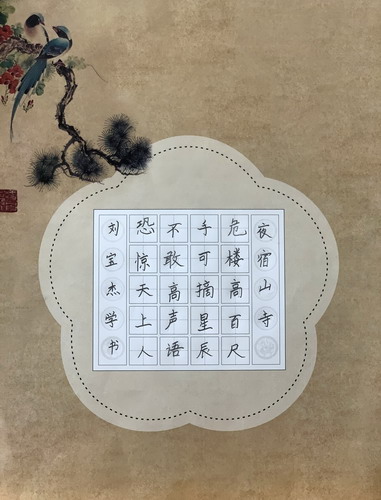 夜宿山寺
危楼高百尺
手可摘星辰
不敢高声语
恐惊天上人
刘宝杰学书